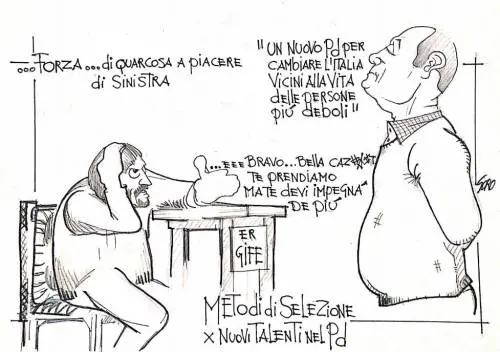 ...FORZA...di QUARCOSA A PIACERE
di SINISTRA
"UN NUOVO Pd PER
CAMBIARE L'ITALIA
VICINI ALLA VITA
delle PERSONE
PIÙ DEBOLI"
...EEE BRAVO...BELLA CAZ###T.
TE PRENDIAMO
MA TE DEVI IMPEGNA'
DE PIÙ
ER
GIFE
METODI di SELEZIONE
X NUOVI TALENTI NEL Pd